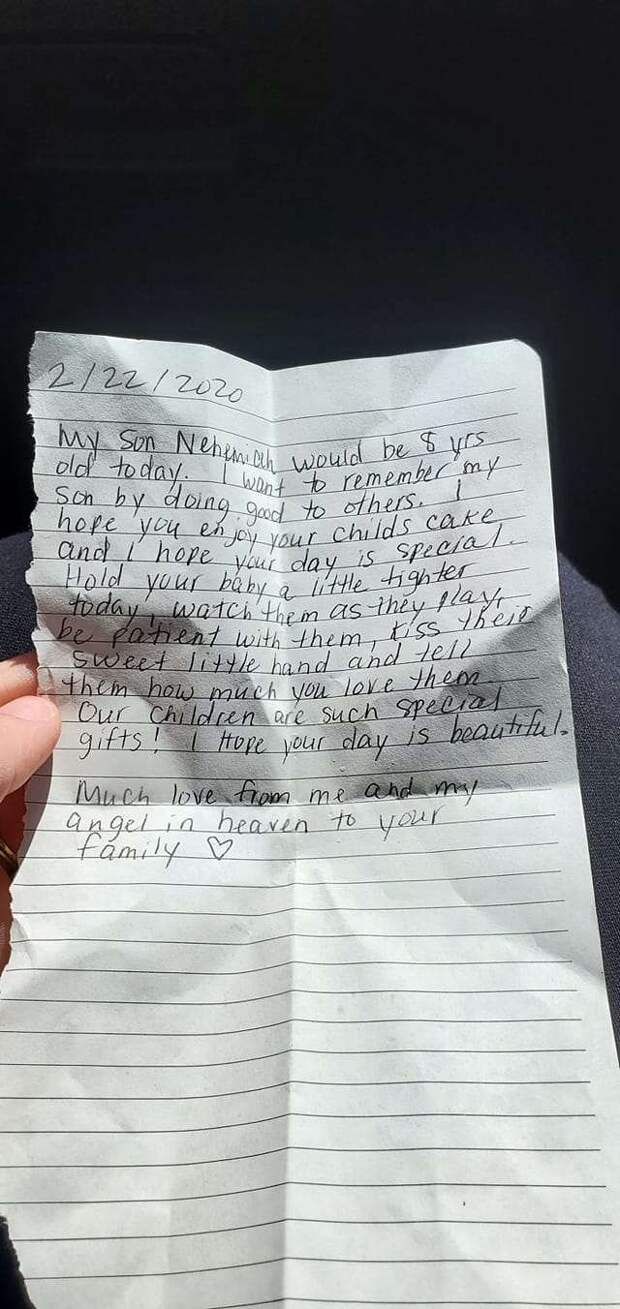 2/22/2020
My son Nehemiah would be 8 yrs
old today. I want to remember my
son by doing good to others. I
hope you enjoy your childs cake
and I hope your day is special.
Hold your baby a little tighter
today, watch them as they play,
be patient with them, kiss their
sweet little hand and tell
them how much you love them.
Our children are such special
gifts! I Hope your day is beautiful.
Much love from me and my
angel in heaven to your
family ♡